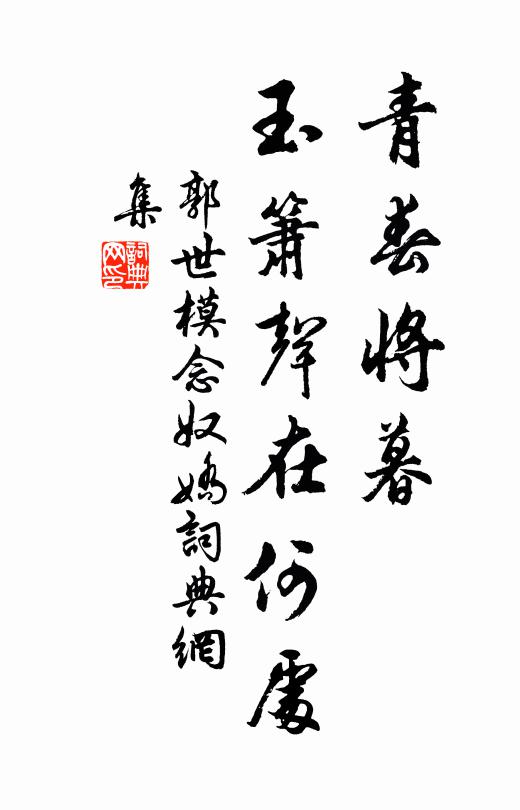 青春將暮
玉簫聲在何處
郭世模念奴嬌詞典網
集
詞典
网印